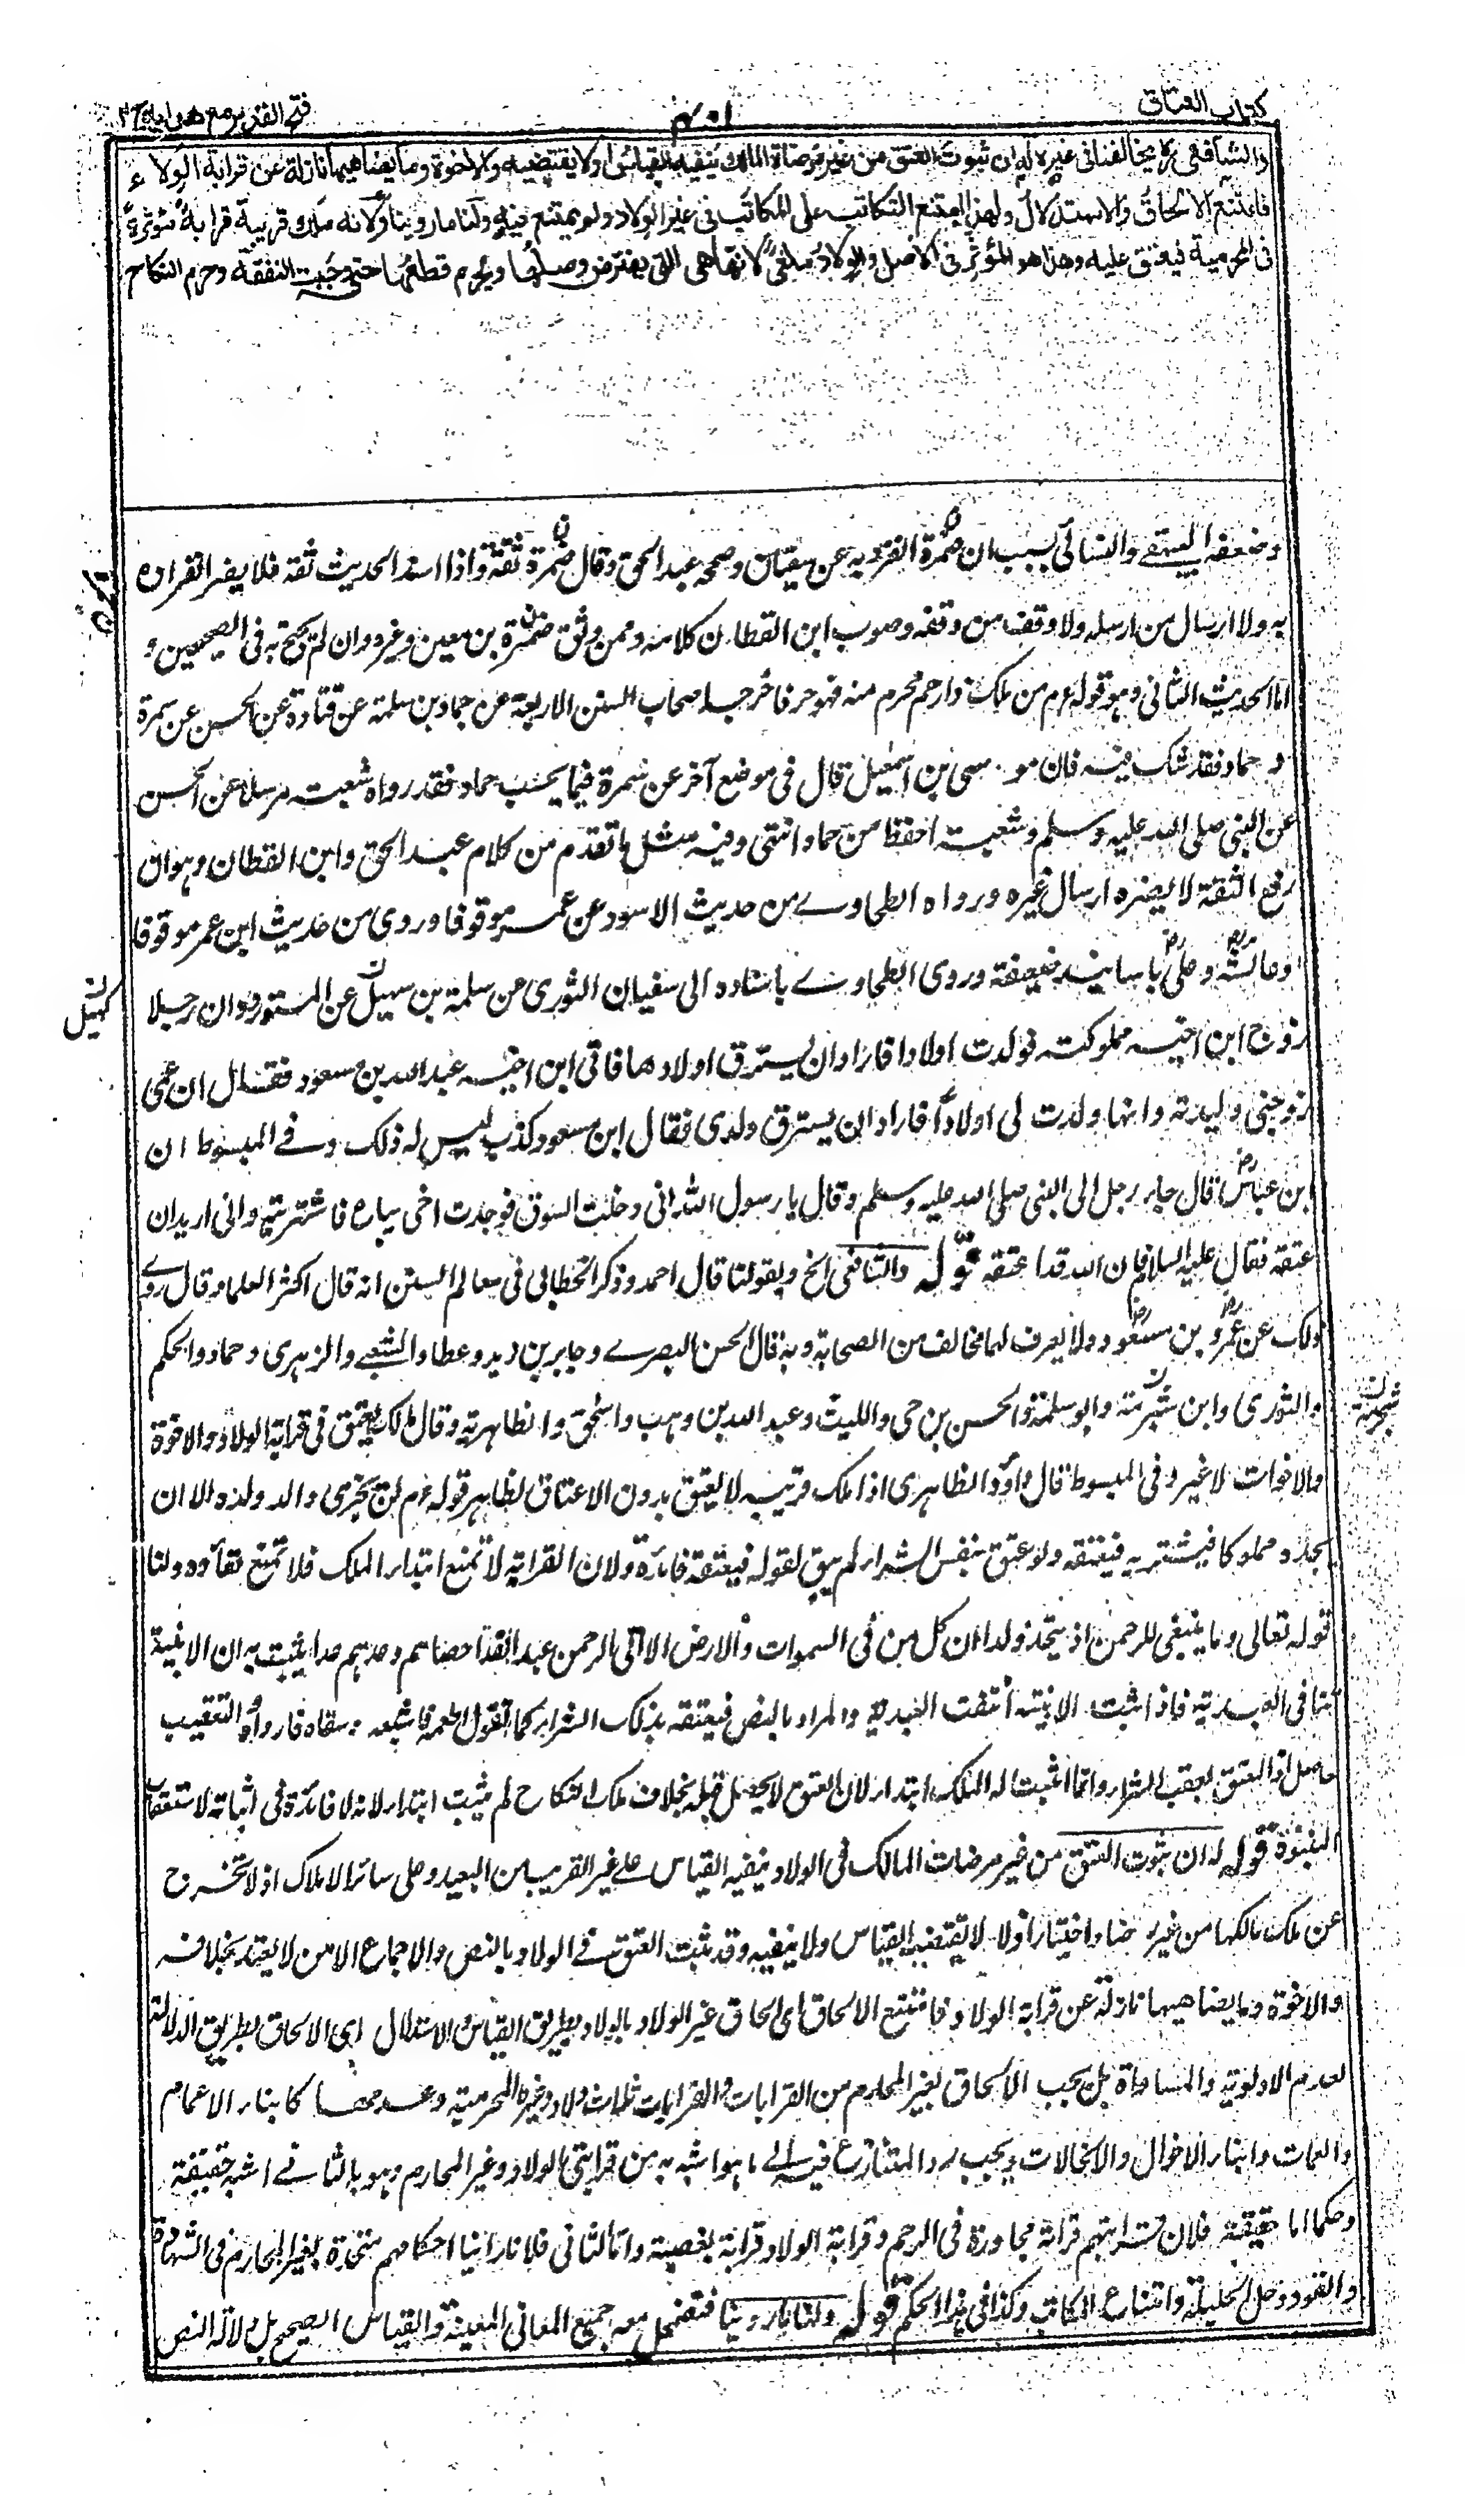 كتاب العتاق
فتح القدير مع هدايه
والشافعي رح يخالفنا في غيره له ان ثبوت العتق من غير مرضاة المالك ينفيه القياس او لا يقتضيه والاخوة وما يضاهيها نازلة عن قرابة الولاء
فامتنع الالحاق والاستدلال ولهذا امتنع التكاتب على المكاتب في غير الولاد ولم يمتنع فيه ولنا ما روينا ولانه ملك قريبه قرابة مؤثرة
في المحرمية فيعتق عليه وهذا هو المؤثر في الاصل والولاد ملغى لانها هي التي يفترض وصلها ويحرم قطعها حتى وجبت النفقة وحرم النكاح
وضعفه البيهقي والنسائي بسبب ان ضمرة انفرد به عن سفيان وصححه عبد الحق وقال ضمرة ثقة واذا اسند الحديث ثقة فلا يضر انفراده
به ولا ارسال من ارسله ولا وقف من وقفه وصوب ابن القطان كلامه وممن وثق ضمرة بن معين وغيره وان لم يحتج به في الصحيحين و
اما الحديث الثاني وهو قوله عم من ملك ذا رحم محرم منه فهو حر فاخرجه اصحاب السنن الاربعة عن حماد بن سلمة عن قتادة عن الحسن عن سمرة
و حماد فقد شك فيه فان موسى بن اسمعيل قال في موضع آخر عن سمرة فيما يحسب حماد فقد رواه شعبة مرسلا عن الحسن
عن النبي صلى الله عليه وسلم وشعبة احفظ من حماد انتهى وفيه مثل ما تقدم من كلام عبد الحق وابن القطان وهو ان
رفع الثقة لا يضره ارسال غيره ورواه الطحاوي من حديث الاسود عن عمر موقوفا وروي من حديث ابن عمر موقوفا
وعائشة وعلي باسانيد ضعيفة وروى الطحاوي باسناده الى سفيان الثوري عن سلمة بن سهيل عن المستورد ان رجلا
كهيل
زوج ابن اخيه مملوكته فولدت اولادا فاراد ان يسترق اولادها فاتى ابن اخيه عبد الله بن مسعود فقال ان عمي
زوجني وليدته وانها ولدت لي اولادا فاراد ان يسترق ولدي فقال ابن مسعود كذب ليس له ذلك وفي المبسوط ان
ابن عباس قال جاء رجل الى النبي صلى الله عليه وسلم وقال يا رسول الله اني دخلت السوق فوجدت اخي يباع فاشتريته واني اريد ان
اعتقه فقال عليه السلام ان الله قد اعتقه قوله والشافعي الخ وبقولنا قال احمد وذكر الخطابي في معالم السنن انه قال اكثر العلماء قال روي
ذلك عن عمر وبن مسعود ولا يعرف لهما مخالف من الصحابة وبه قال الحسن البصري وجابر بن زيد وعطاء والشعبي والزهري وحماد والحكم
والثوري وابن شبرمة وابو سلمة والحسن بن حي والليث وعبد الله بن وهب واسحق والظاهرية وقال مالك يعتق في قرابة الولاد والاخوة
والاخوات لا غير وفي المبسوط قال داود الظاهري اذا ملك قريبه لا يعتق بدون الاعتاق لظاهر قوله عم لن يجزي والد ولده الا ان
يجده مملوكا فيشتريه فيعتقه ولو عتق بنفس الشراء لم يبق لقوله فيعتقه فائدة ولان القرابة لا تمنع ابتداء الملك فلا تمنع بقاءه ولنا
قوله تعالى وما ينبغي للرحمن ان يتخذ ولدا ان كل من في السموات والارض الا آتي الرحمن عبدا لقد احصاهم وعدهم عدا يثبت به ان الابنية
تنافي العبدية فاذا ثبت الابنية انتفت العبدية والمراد بالنص فيعتقه بذلك الشراء كما تقول اطعمه فاشبعه وسقاه فارواه والتعقيب
حاصل اذ العتق يعقب الشراء وانما اثبتنا له الملك ابتداء لان العتق لا يحصل قبله بخلاف ملك النكاح لم يثبت ابتداء لانه لا فائدة في اثباته لاستعقاب
البينونة قوله له ان ثبوت العتق من غير مرضات المالك في الولاد ينفيه القياس على غير القريب من البعيد وعلى سائر الاملاك اذ لا تخرج
عن ملك مالكها من غير رضا واختيار او لا لا يقتضيه القياس ولا ينفيه وقد ثبت العتق في الولاد بالنص والاجماع الا من لا يعتد بخلافه
والاخوة وما يضاهيها نازلة عن قرابة الولاد فامتنع الالحاق اي الحاق غير الولاد بالولاد بطريق القياس والاستدلال اي الالحاق بطريق الدلالة
لعدم الاولوية والمساواة بل يجب الالحاق بغير المحارم من القرابات والقرابات ثلاث ولاد وغيره المحرمية وعدمها كابناء الاعمام
والعمات وابناء الاخوال والخالات ويجب رد المتنازع فيه الى ما هو اشبه به من قرابتي الولاد وغير المحارم وهو بالثاني اشبه حقيقة
وحكما اما حقيقة فلان قرابتهم قرابة مجاورة في الرحم وقرابة الولاد قرابة بعضية واما الثاني فلانا راينا احكامهم متحدة بغير المحارم في الشهادة
والقود وحل الحليلة وامتناع التكاتب وكذا في هذا الحكم قوله ولنا ما روينا فتضمحل معه جميع المعاني المعينة والقياس الصحيح بل دلالة النص